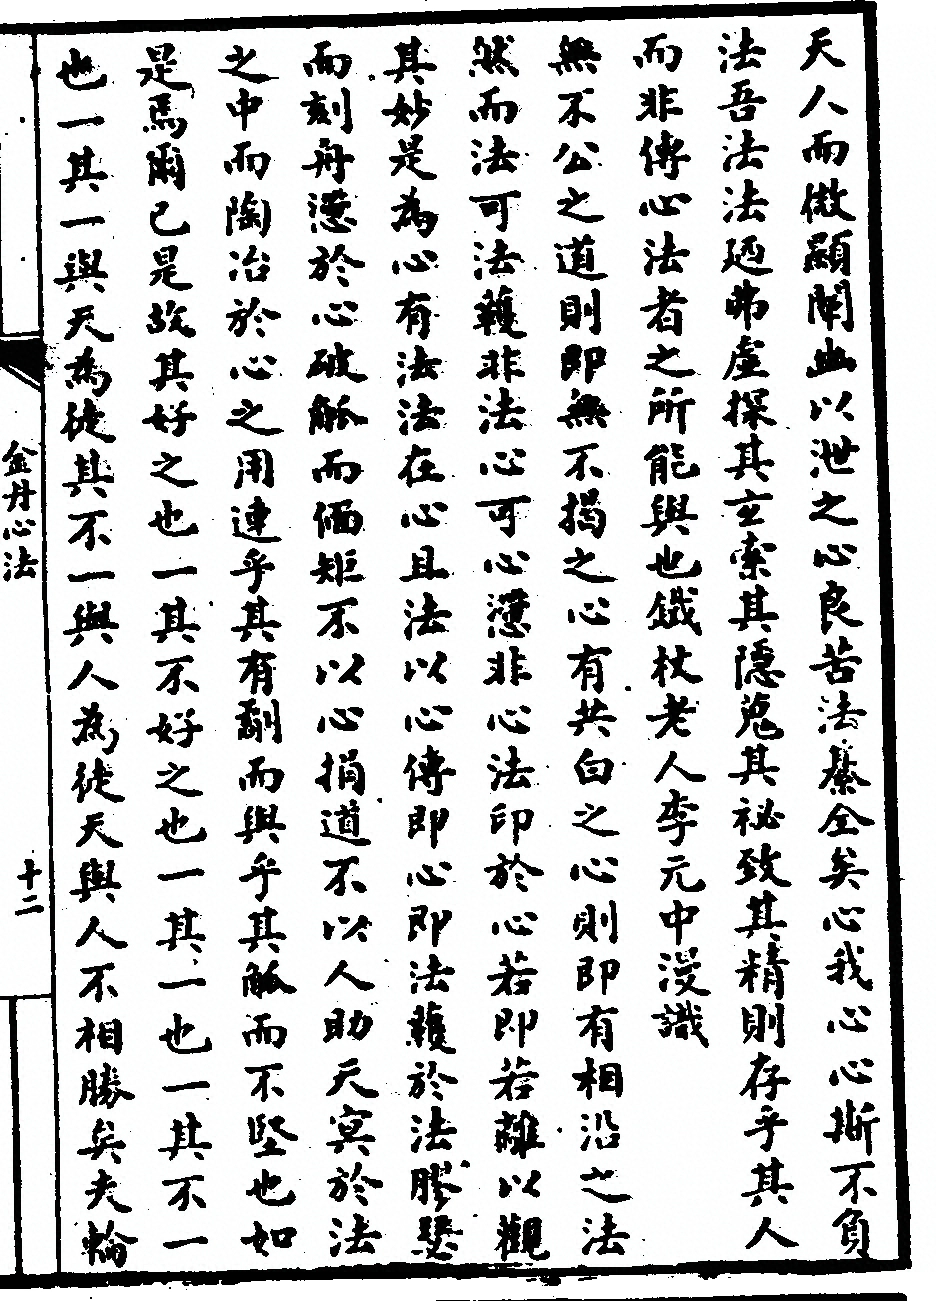 天人而微顯闡幽以泄之心良苦法綦全矣心我心心斯不負
法吾法法廼弗虛探其玄索其隱蒐其祕致其精則存乎其人
而非傳心法者之所能與也鐵杖老人李元中漫識
無不公之道則即無不揭之心有共白之心則即有相沿之法
然而法可法蔓非法心可心非心法印於心若即若離以觀
其妙是為心有法法在心且法以心傳即心即法於法膠瑟
而刻舟於心破觚而偭矩不以心捐道不以人助天冥於法
之中而陶冶於心之用連乎其有劌而與乎其觚而不堅也如
是焉爾已是故其好之也一其不好之也一其一也一其不一
也一其一與天為徒其不一與人為徒天與人不相勝矣夫輪
金丹心法
十二